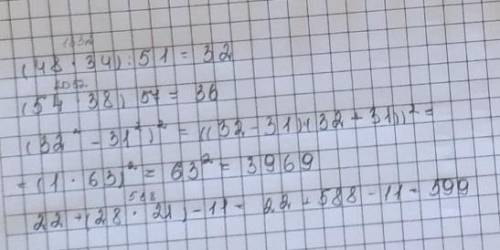 1632
(48 · 34) : 51 = 32
2052
(54 · 38) : 57 = 36
(32² - 31²)² = ((32 - 31)·(32 + 31))² =
= (1 · 63)² = 63² = 3969
588
22 + (28 · 21) - 11 = 22 + 588 - 11 = 599